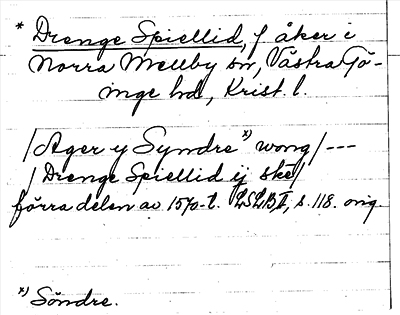 * Drenge Spiellid, f åker i
Norra Mellby sn, Västra Gö-
inge hd, Krist. l.
/Ager y Syndre x) wong/---
/Drenge Spiellid ij ske/
förra delen av 1570-t. LSLB II, s. 118. orig.
x) Söndre.